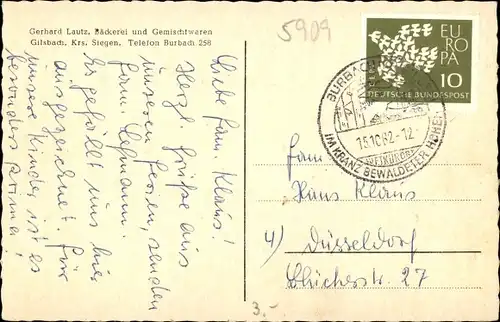 Gerhard Lautz, Bäckerei und Gemischtwaren
Gilsbach, Krs. Siegen, Telefon Burbach 258
5909
Liebe Fam. Klaus!
Herzl. Grüße aus
unseren Ferien, senden
Fam. Lehmann.
Es gefällt uns hier
ausgezeichnet. Für
unsere Kinder ist es
besonders
EUROPA
10
DEUTSCHE BUNDESPOST
BURBACH
16.10.62.-12
LUFTKURORT
IM KRANZ BEWALDETER HÖHEN
Fam
Hans Klaus
4) Düsseldorf
Blücherstr. 27
3.-